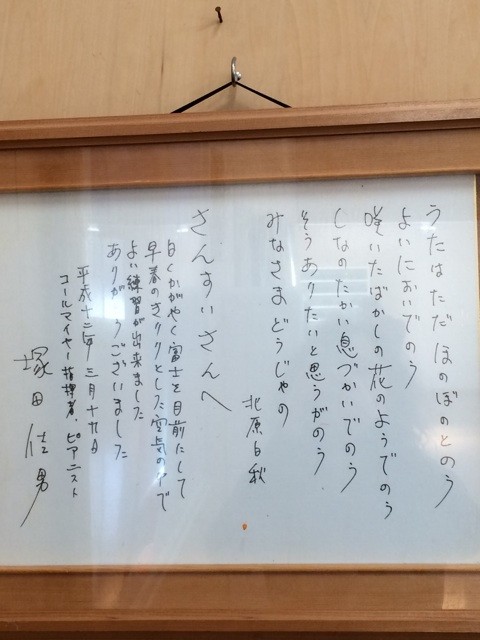 うたはただほのぼのとのう
よいにおいでのう
咲いたばかしの花のようでのう
しなのたかい息づかいでのう
そうありたいと思うがのう
みなさまどうじゃの
北原白秋
さんすいさんへ
白くかがやく富士を目前にして
早春のきりりとした空気の中で
よい練習が出来ました
ありがとうございました
平成十二年三月十九日
コールマイヤー指揮者、ピアニスト
塚田佳男